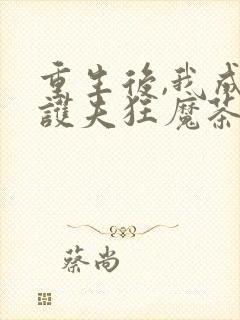 重生後,我成
護夫狂魔茶
蔡尚